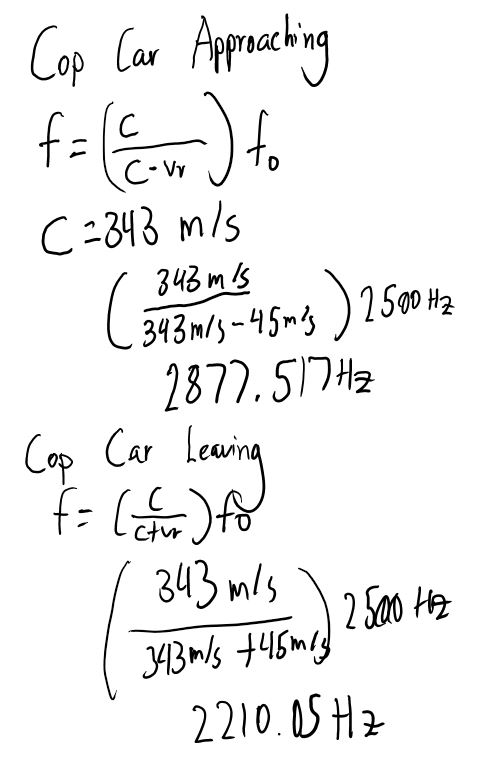 Cop Car Approaching
f = (C / C - Vr) f₀
C = 343 m/s
(343 m/s / 343 m/s - 45 m/s) 2500 Hz
2877.517 Hz
Cop Car Leaving
f = (C / C + Vr) f₀
(343 m/s / 343 m/s + 45 m/s) 2500 Hz
2210.05 Hz